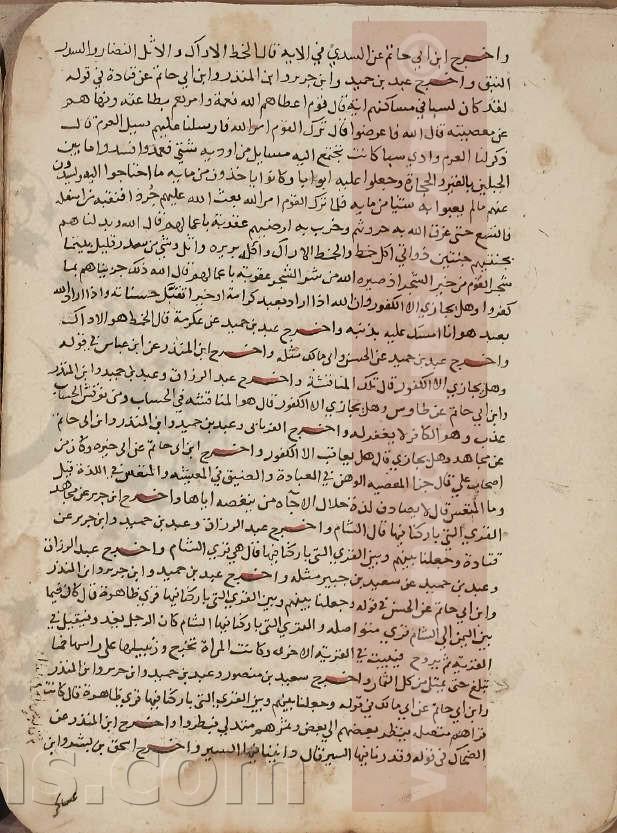 واخرج ابن ابي حاتم عن السدي في الايه قال الخط الاراك والاثل النضار والسدر
النبق واخرج عبد بن حميد وابن جرير وابن المنذر وابن ابي حاتم عن قتادة في قوله
لقد كان لسبا في مساكنهم اية قال قوم اعطاهم الله نعمة وامرهم بطاعته ونهاهم
عن معصيته قال الله فاعرضوا قال ترك القوم امر الله فارسلنا عليهم سيل العرم قال
ذكر لنا العرم وادي سبا كانت تجتمع اليه مسايل من اودية شتي فعمدوا فسدوا ما بين
الجبلين بالقير والحجارة وجعلوا عليه ابوابا وكانوا ياخذون من مايه ما احتاجوا اليه ويسدون
عنهم مالم يعبوا به شيا من مايه فلما ترك القوم امر الله بعث الله عليهم جرذا فنقبه من اسفله
فاتسع حتى غرق الله به حروثهم وخرب به ارضهم عقوبة باعمالهم قال الله وبدلناهم
بجنتيهم جنتين ذواتي اكل خمط والخمط الاراك واكله بريره واثل وشي من سدر قليل بينما
شجر القوم من خير الشجر اذ صيره الله من شر الشجر عقوبة باعمالهم قال الله ذلك جزيناهم بما
كفروا وهل يجازي الا الكفور وان الله اذا اراد بعبد كرامة او خيرا تقبل حسناته واذا اراد الله
بعبد هوانا امسك عليه بذنبه واخرج عبد بن حميد عن عكرمة قال الخمط هو الاراك
واخرج عبد بن حميد عن الحسن وابي مالك مثله واخرج ابن المنذر عن ابن عباس في قوله
وهل يجازي الا الكفور قال تلك المناقشة واخرج عبد الرزاق وعبد بن حميد وابن المنذر
وابن ابي حاتم عن طاوس وهل يجازي الا الكفور قال هو المناقشه في الحساب ومن نوقش الحساب
عذب وهو الكافر لا يغفر له واخرج الفريابي وعبد بن حميد وابن المنذر وابن ابي حاتم
عن مجاهد وهل يجازي قال هل يعاقب الا الكفور واخرج ابن ابي حاتم عن ابي خيره وكان من
اصحاب علي قال جزا المعصيه الوهن في العبادة والضيق في المعيشه والمنغص في اللذة قيل
وما المنغص قال لا يصادف لذة حلال الا جاه من ينغصه اياها واخرج ابن جرير عن مجاهد
القري التي باركنا فيها قال الشام واخرج عبد الرزاق وعبد بن حميد وابن جرير عن
قتادة وجعلنا بينهم وبين القري التي باركنا فيها قال هي قري الشام واخرج عبد الرزاق
وعبد بن حميد عن سعيد بن جبير مثله واخرج عبد بن حميد وابن جرير وابن المنذر
وابن ابي حاتم عن الحسن في قوله وجعلنا بينهم وبين القري التي باركنا فيها قري ظاهرة قال كان فيما
بين اليمن الى الشام قري متواصله والقري التي باركنا فيها الشام كان الرجل يغدو فيقيل في
القرية ثم يروح فيبيت في القرية الاخري وكانت المراة تخرج وزنبيلها على راسها فما
تبلغ حتى يمتلي من كل الثمار واخرج سعيد بن منصور وعبد بن حميد وابن جرير وابن المنذر
وابن ابي حاتم عن ابي مالك في قوله وجعلنا بينهم وبين القري التي باركنا فيها قري ظاهرة قال كانت
قراهم متصله ينظر بعضهم الى بعض وثمرهم متدلي فبطروا واخرج ابن المنذر عن
الضحاك في قوله وقدرنا فيها السير قال دانينا فيها السير واخرج اسحق بن بشر وابن
عساكر
ns.com